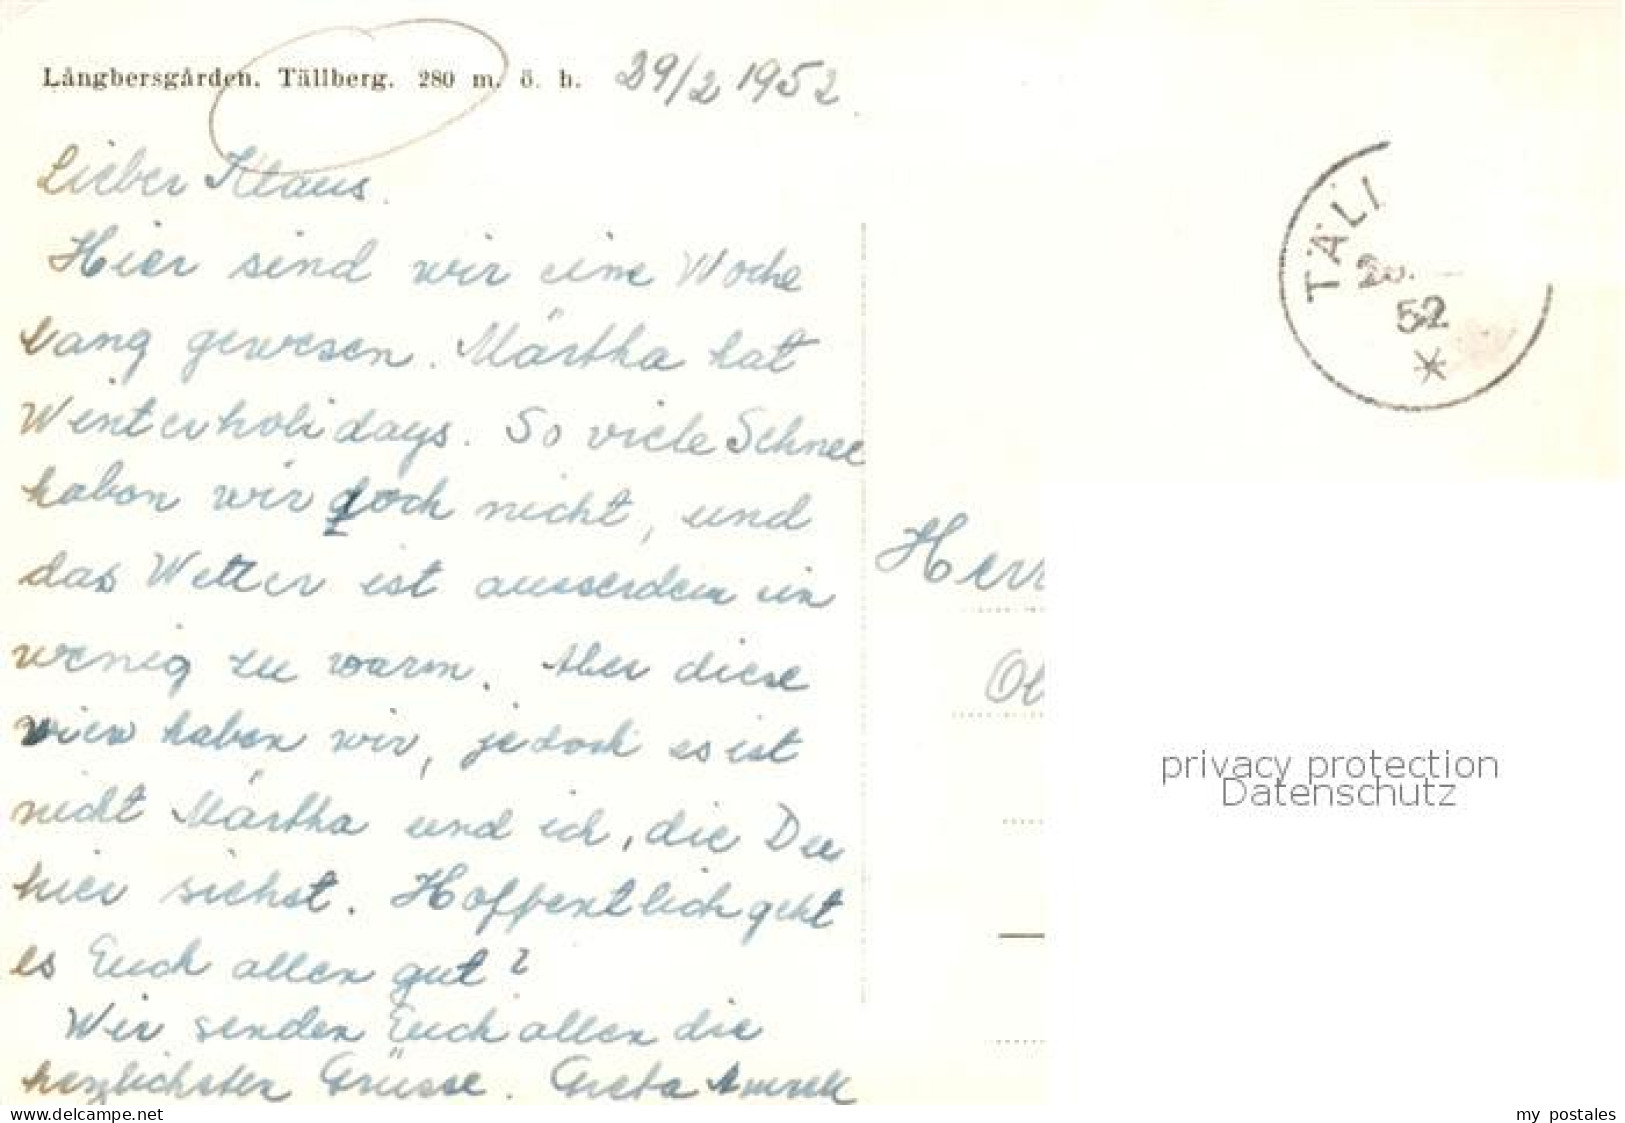 Långbersgården. Tällberg. 280 m. ö. h. 29/2 1952.
Lieber Klaus.
Hier sind wir eine Woche
lang gewesen. Märtha hat
Winterholidays. So viele Schnee
haben wir doch nicht, und
das Wetter ist ausserdem ein
wenig zu warm. Aber diese
view haben wir, jedoch es ist
nicht Märtha und ich, die Du
hier siehst. Hoffentlich geht
es Euch allen gut?
Wir senden Euch allen die
herzlichsten Grüsse. Greta
TÄLL
52
Herr
privacy protection
Datenschutz
www.delcampe.net
my_postales